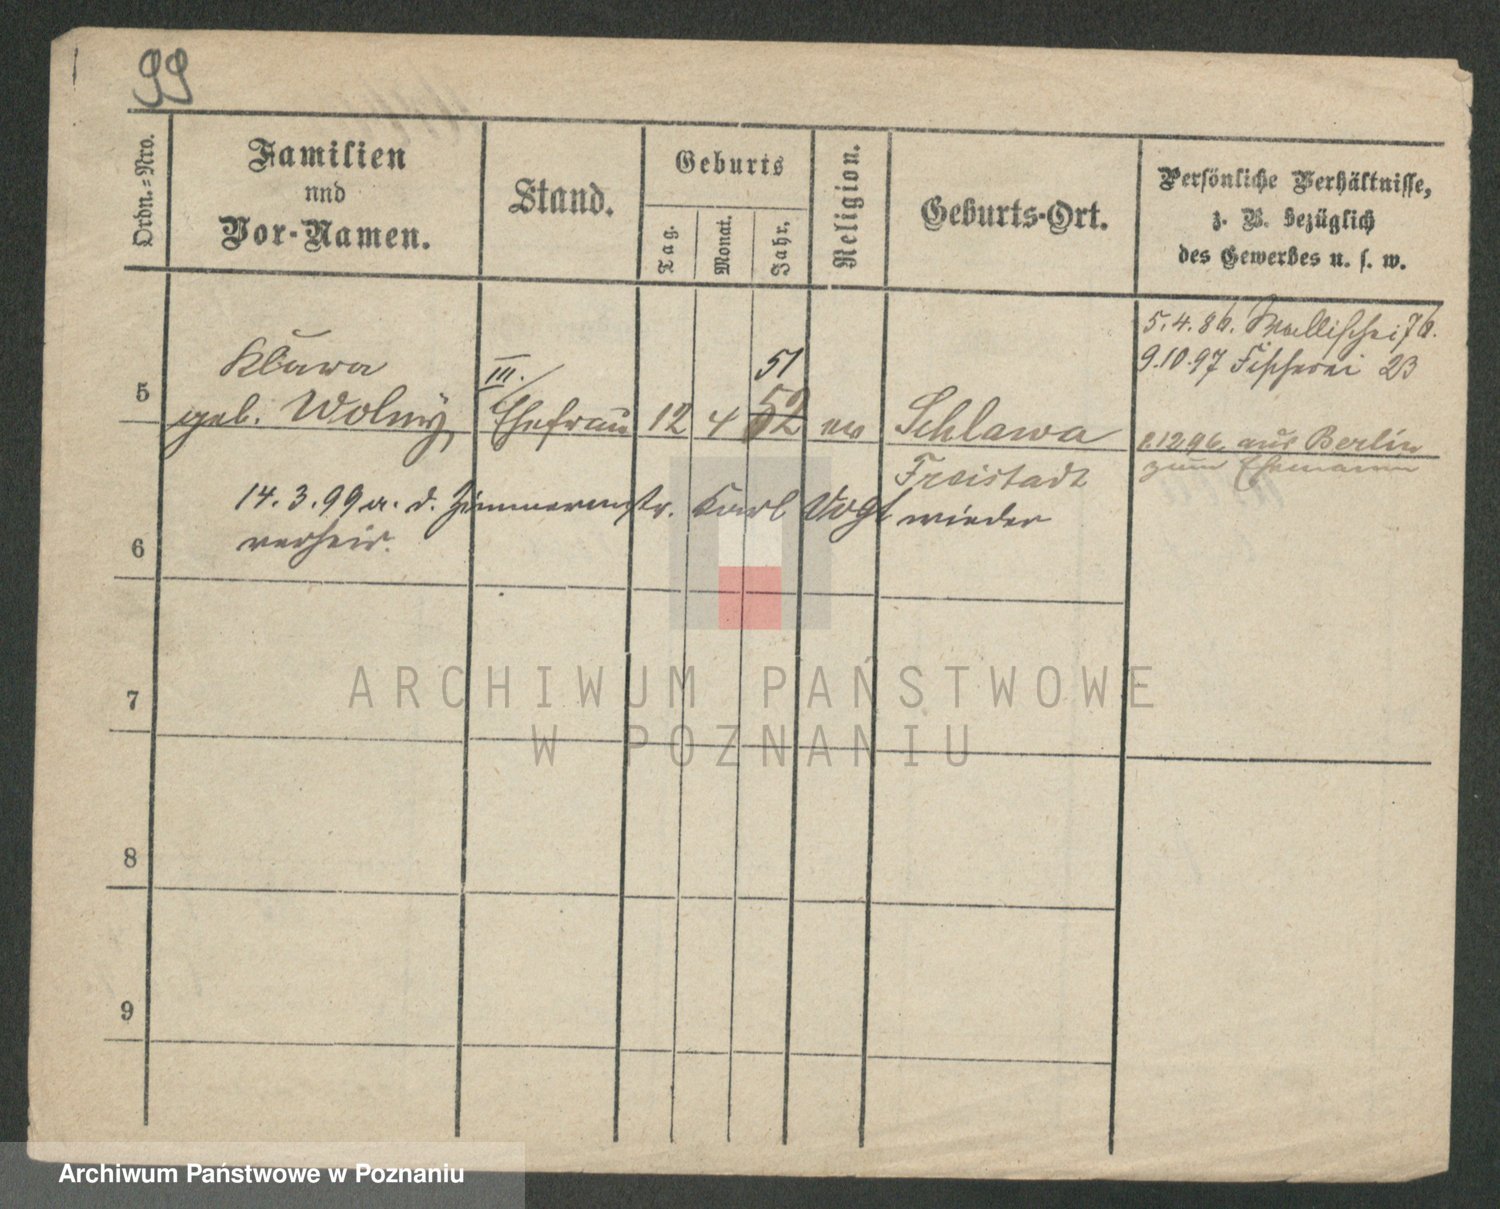 99
Ordn.=Nro.
Familien
und
Vor-Namen.
Stand.
Geburts
Tag.
Monat.
Jahr.
Religion.
Geburts-Ort.
Persönliche Verhältnisse,
z. B. bezüglich
des Gewerbes u. s. w.
5.4.86. Wallischei 76.
9.10.97 Fischerei 23
5
Klara
geb. Wolny
III.
Ehefrau
12
4
51
52
ev
Schlawa
Freistadt
2.12.96. aus Berlin
zum Ehemann
14.3.99 a. d. Zimmermstr. Karl Vogt wieder
verheir.
6
7
8
9
ARCHIWUM PAŃSTWOWE
W POZNANIU
Archiwum Państwowe w Poznaniu